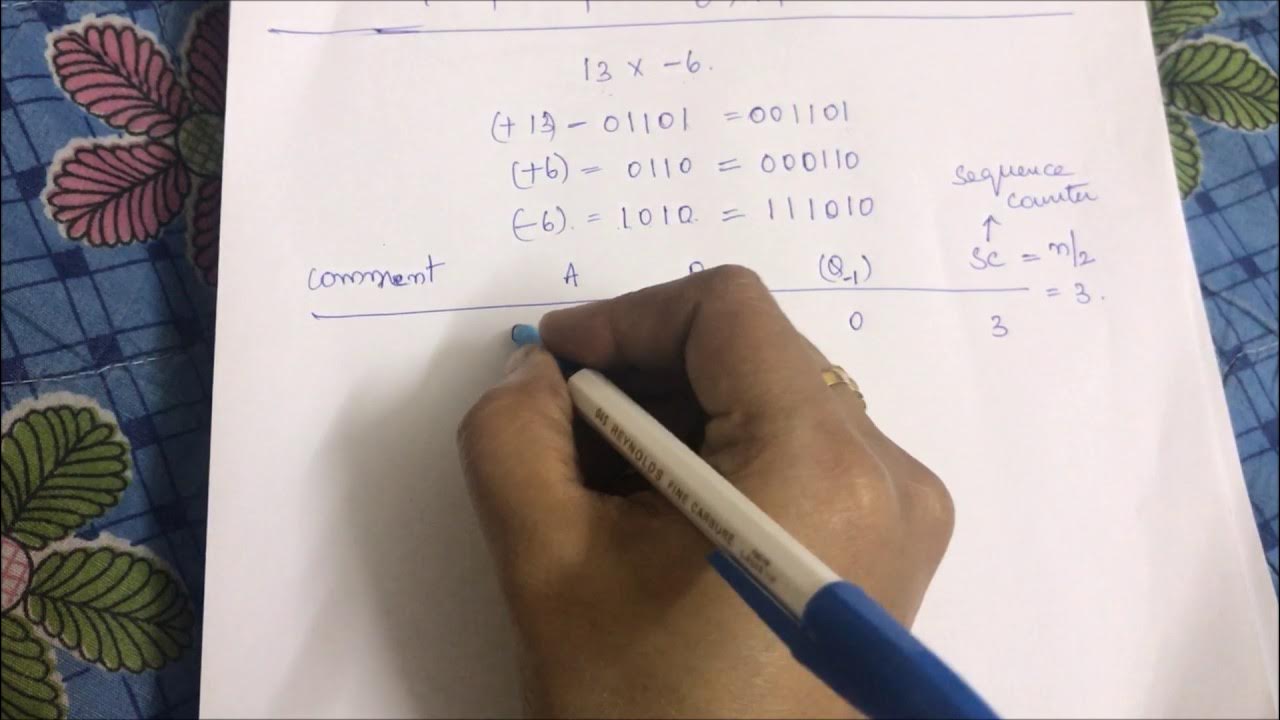 13 x -6.
(+ 13) - 01101 = 001101
(+6) = 0110 = 000110
(-6). = 1010. = 111010
sequence
counter
↑
comment A (Q-1) SC = n/2
= 3.
0 3
045 REYNOLDS FINE CARBURE